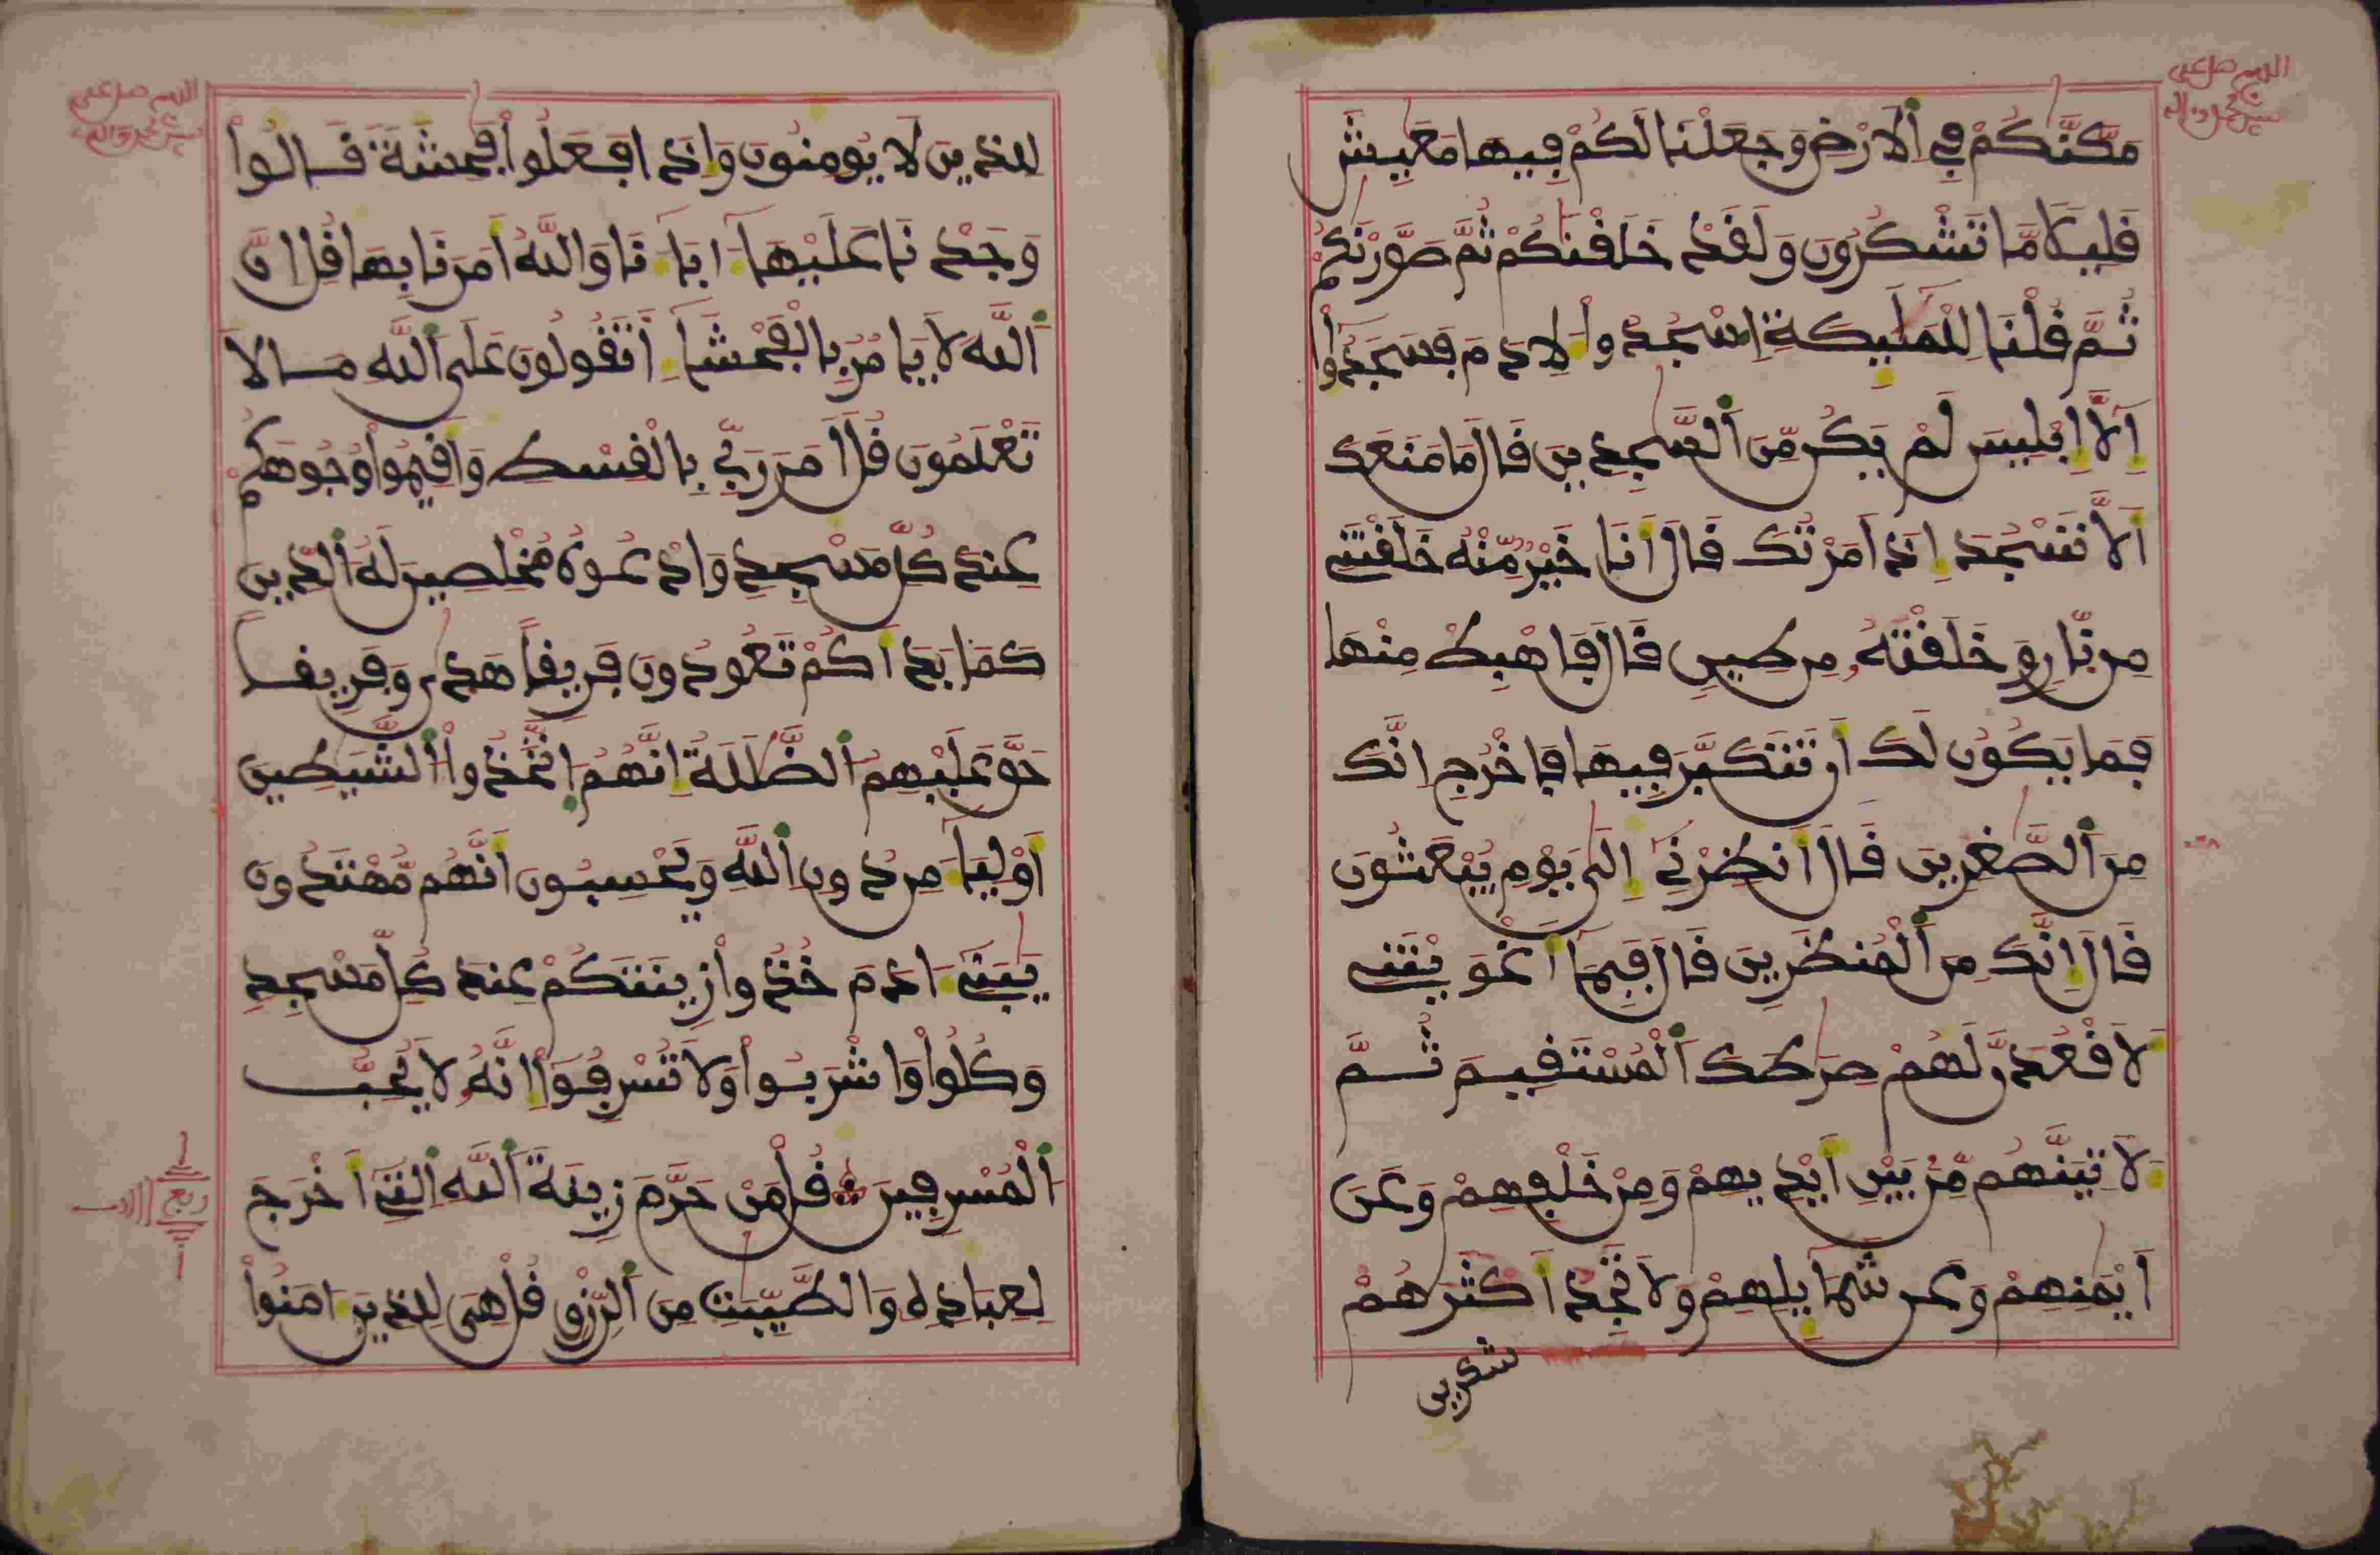 اللهم صل على
سيدنا محمد وءاله
مَكَّنَّكُمْ فِي اَ۬لَارْضِ وَجَعَلْنَا لَكُمْ فِيهَا مَعَٰيِشَ
قَلِيلاً مَّا تَشْكُرُونَ وَلَقَدْ خَلَقْنَٰكُمْ ثُمَّ صَوَّرْنَٰكُمْ
ثُمَّ قُلْنَا لِلْمَلَٰٓئِكَةِ اِ۟سْجُدُواْ لِأَدَمَ فَسَجَدُوٓاْ
إِلَّآ إِبْلِيسَ لَمْ يَكُن مِّنَ اَ۬لسَّٰجِدِينَ قَالَ مَا مَنَعَكَ
أَلَّا تَسْجُدَ إِذَ اَمَرْتُكَ قَالَ أَنَا خَيْرٌ مِّنْهُ خَلَقْتَنِے
مِن نّ۪ارٖ وَخَلَقْتَهُۥ مِن طِينٖ قَالَ فَاهْبِطْ مِنْهَا
فَمَا يَكُونُ لَكَ أَن تَتَكَبَّرَ فِيهَا فَاخْرُجِ اِنَّكَ
مِنَ اَ۬لصَّٰغِرِينَ قَالَ أَنظِرْنِےٓ إِلَىٰ يَوْمِ يُبْعَثُونَ
قَالَ إِنَّكَ مِنَ اَ۬لْمُنظَرِينَ قَالَ فَبِمَآ أَغْوَيْتَنِے
لَأَقْعُدَنَّ لَهُمْ صِرَٰطَكَ اَ۬لْمُسْتَقِيمَ ثُمَّ
لَأٓتِيَنَّهُم مِّنۢ بَيْنِ أَيْدِيهِمْ وَمِنْ خَلْفِهِمْ وَعَنَ
اَيْمَٰنِهِمْ وَعَن شَمَآئِلِهِمْ وَلَا تَجِدُ أَكْثَرَهُمْ
شٰكرين
اللهم صل على
سيدنا محمد وءاله
لِلذِينَ لَا يُومِنُونَ وَإِذَا فَعَلُواْ فَٰحِشَةٗ قَالُواْ
وَجَدْنَا عَلَيْهَآ ءَابَآءَنَا وَاللَّهُ أَمَرَنَا بِهَا قُلِ اِنَّ
اَ۬للَّهَ لَا يَامُرُ بِالْفَحْشَآءِ أَتَقُولُونَ عَلَى اَ۬للَّهِ مَا لَا
تَعْلَمُونَ قُلَ اَمَرَ رَبِّے بِالْقِسْطِ وَأَقِيمُواْ وُجُوهَكُمْ
عِندَ كُلِّ مَسْجِدٖ وَادْعُوهُ مُخْلِصِينَ لَهُ اُ۬لدِّينَ
كَمَا بَدَأَكُمْ تَعُودُونَ فَرِيقاً هَدَىٰ وَفَرِيقاً
حَقَّ عَلَيْهِمُ اُ۬لضَّلَٰلَةُ إِنَّهُمُ اُ۪تَّخَذُواْ اُ۬لشَّيَٰطِينَ
أَوْلِيَآءَ مِن دُونِ اِ۬للَّهِ وَيَحْسِبُونَ أَنَّهُم مُّهْتَدُونَ
يَٰبَنِےٓ ءَادَمَ خُذُواْ زِينَتَكُمْ عِندَ كُلِّ مَسْجِدٖ
وَكُلُواْ وَاشْرَبُواْ وَلَا تُسْرِفُوٓاْ إِنَّهُۥ لَا يُحِبُّ
اُ۬لْمُسْرِفِينَ قُلْ مَنْ حَرَّمَ زِينَةَ اَ۬للَّهِ اِ۬لتِےٓ أَخْرَجَ
لِعِبَادِهِۦ وَالطَّيِّبَٰتِ مِنَ اَ۬لرِّزْقِ قُلْ هِيَ لِلذِينَ ءَامَنُواْ
ربع